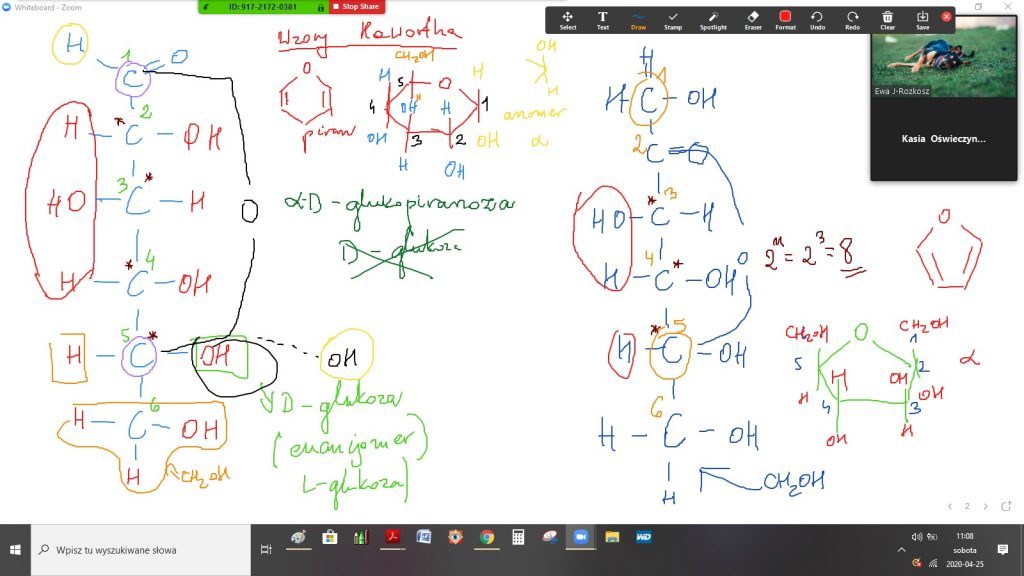 Whiteboard - Zoom
ID: 917-2172-0381
Stop Share
Select Text Draw Stamp Spotlight Eraser Format Undo Redo Clear Save
Ewa J-Rozkosz
Kasia Oświeczyn...
Wzory Hawortha
piran
CH2OH
5 O H
4 OH H H 1
OH 3 2 OH
H OH
OH
H
anomer
α
α-D-glukopiranoza
D-glukoza
H 1 C O
2
H - * C - OH
3
HO - C * - H
4
H - * C - OH
O
5
H - C * - OH
OH
6
H - C - OH
H
CH2OH
D-glukoza
(enancjomer
L-glukoza)
H
H C 1 - OH
2 C = O
3
HO - * C - H
4
H - C * - OH
O
5
H - * C - OH
6
H - C - OH
H
CH2OH
2ⁿ = 2³ = 8
O
CH2OH O CH2OH
5 1 2 α
H H OH OH
4 3
OH H
2
Wpisz tu wyszukiwane słowa
11:08
sobota
2020-04-25